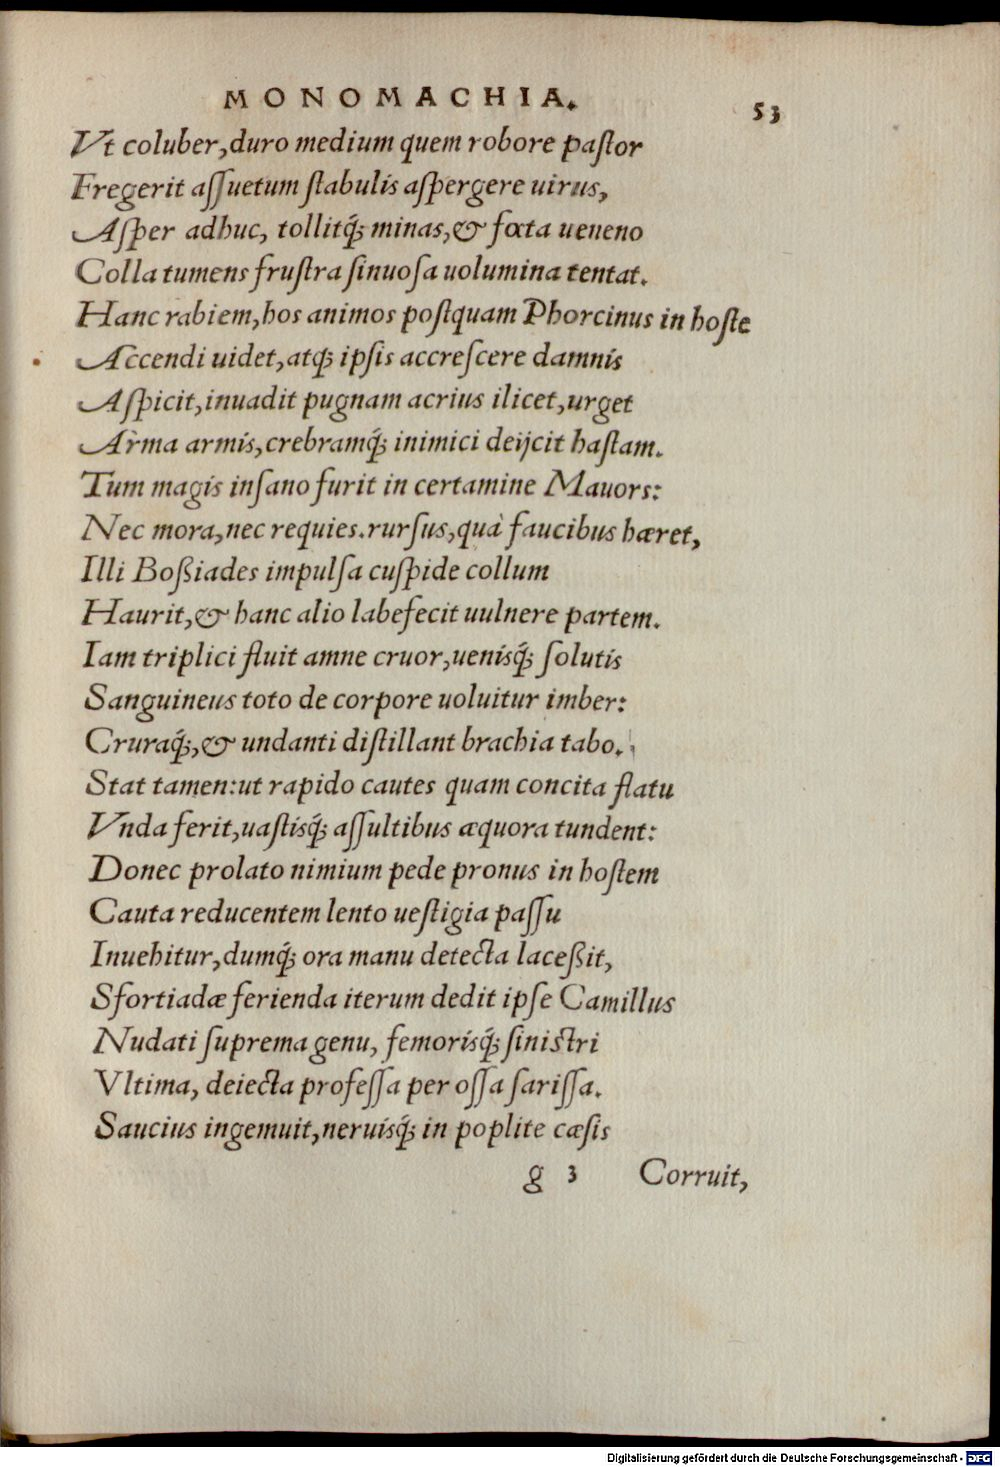 MONOMACHIA. 53
Vt coluber, duro medium quem robore paſtor
Fregerit aſſuetum ſtabulis aſpergere uirus,
Aſper adhuc, tollitq́; minas, & fœta ueneno
Colla tumens fruſtra ſinuoſa uolumina tentat.
Hanc rabiem, hos animos poſtquam Phorcinus in hoſte
Accendi uidet, atq; ipſis accreſcere damnis
Aſpicit, inuadit pugnam acrius ilicet, urget
Arma armis, crebramq́; inimici deijcit haſtam.
Tum magis inſano furit in certamine Mauors:
Nec mora, nec requies. rurſus, quà faucibus hæret,
Illi Boßiades impulſa cuſpide collum
Haurit, & hanc alio labefecit uulnere partem.
Iam triplici fluit amne cruor, uenisq́; ſolutis
Sanguineus toto de corpore uoluitur imber:
Cruraq́;, & undanti diſtillant brachia tabo.
Stat tamen: ut rapido cautes quam concita flatu
Vnda ferit, uaſtisq́; aſſultibus æquora tundent:
Donec prolato nimium pede pronus in hoſtem
Cauta reducentem lento ueſtigia paſſu
Inuehitur, dumq́; ora manu detecta laceßit,
Sfortiadæ ferienda iterum dedit ipſe Camillus
Nudati ſuprema genu, femorisq́; ſiniſtri
Vltima, deiecta profeſſa per oſſa ſariſſa.
Saucius ingemuit, neruisq́; in poplite cæſis
g 3 Corruit,
Digitalisierung gefördert durch die Deutsche Forschungsgemeinschaft - DFG